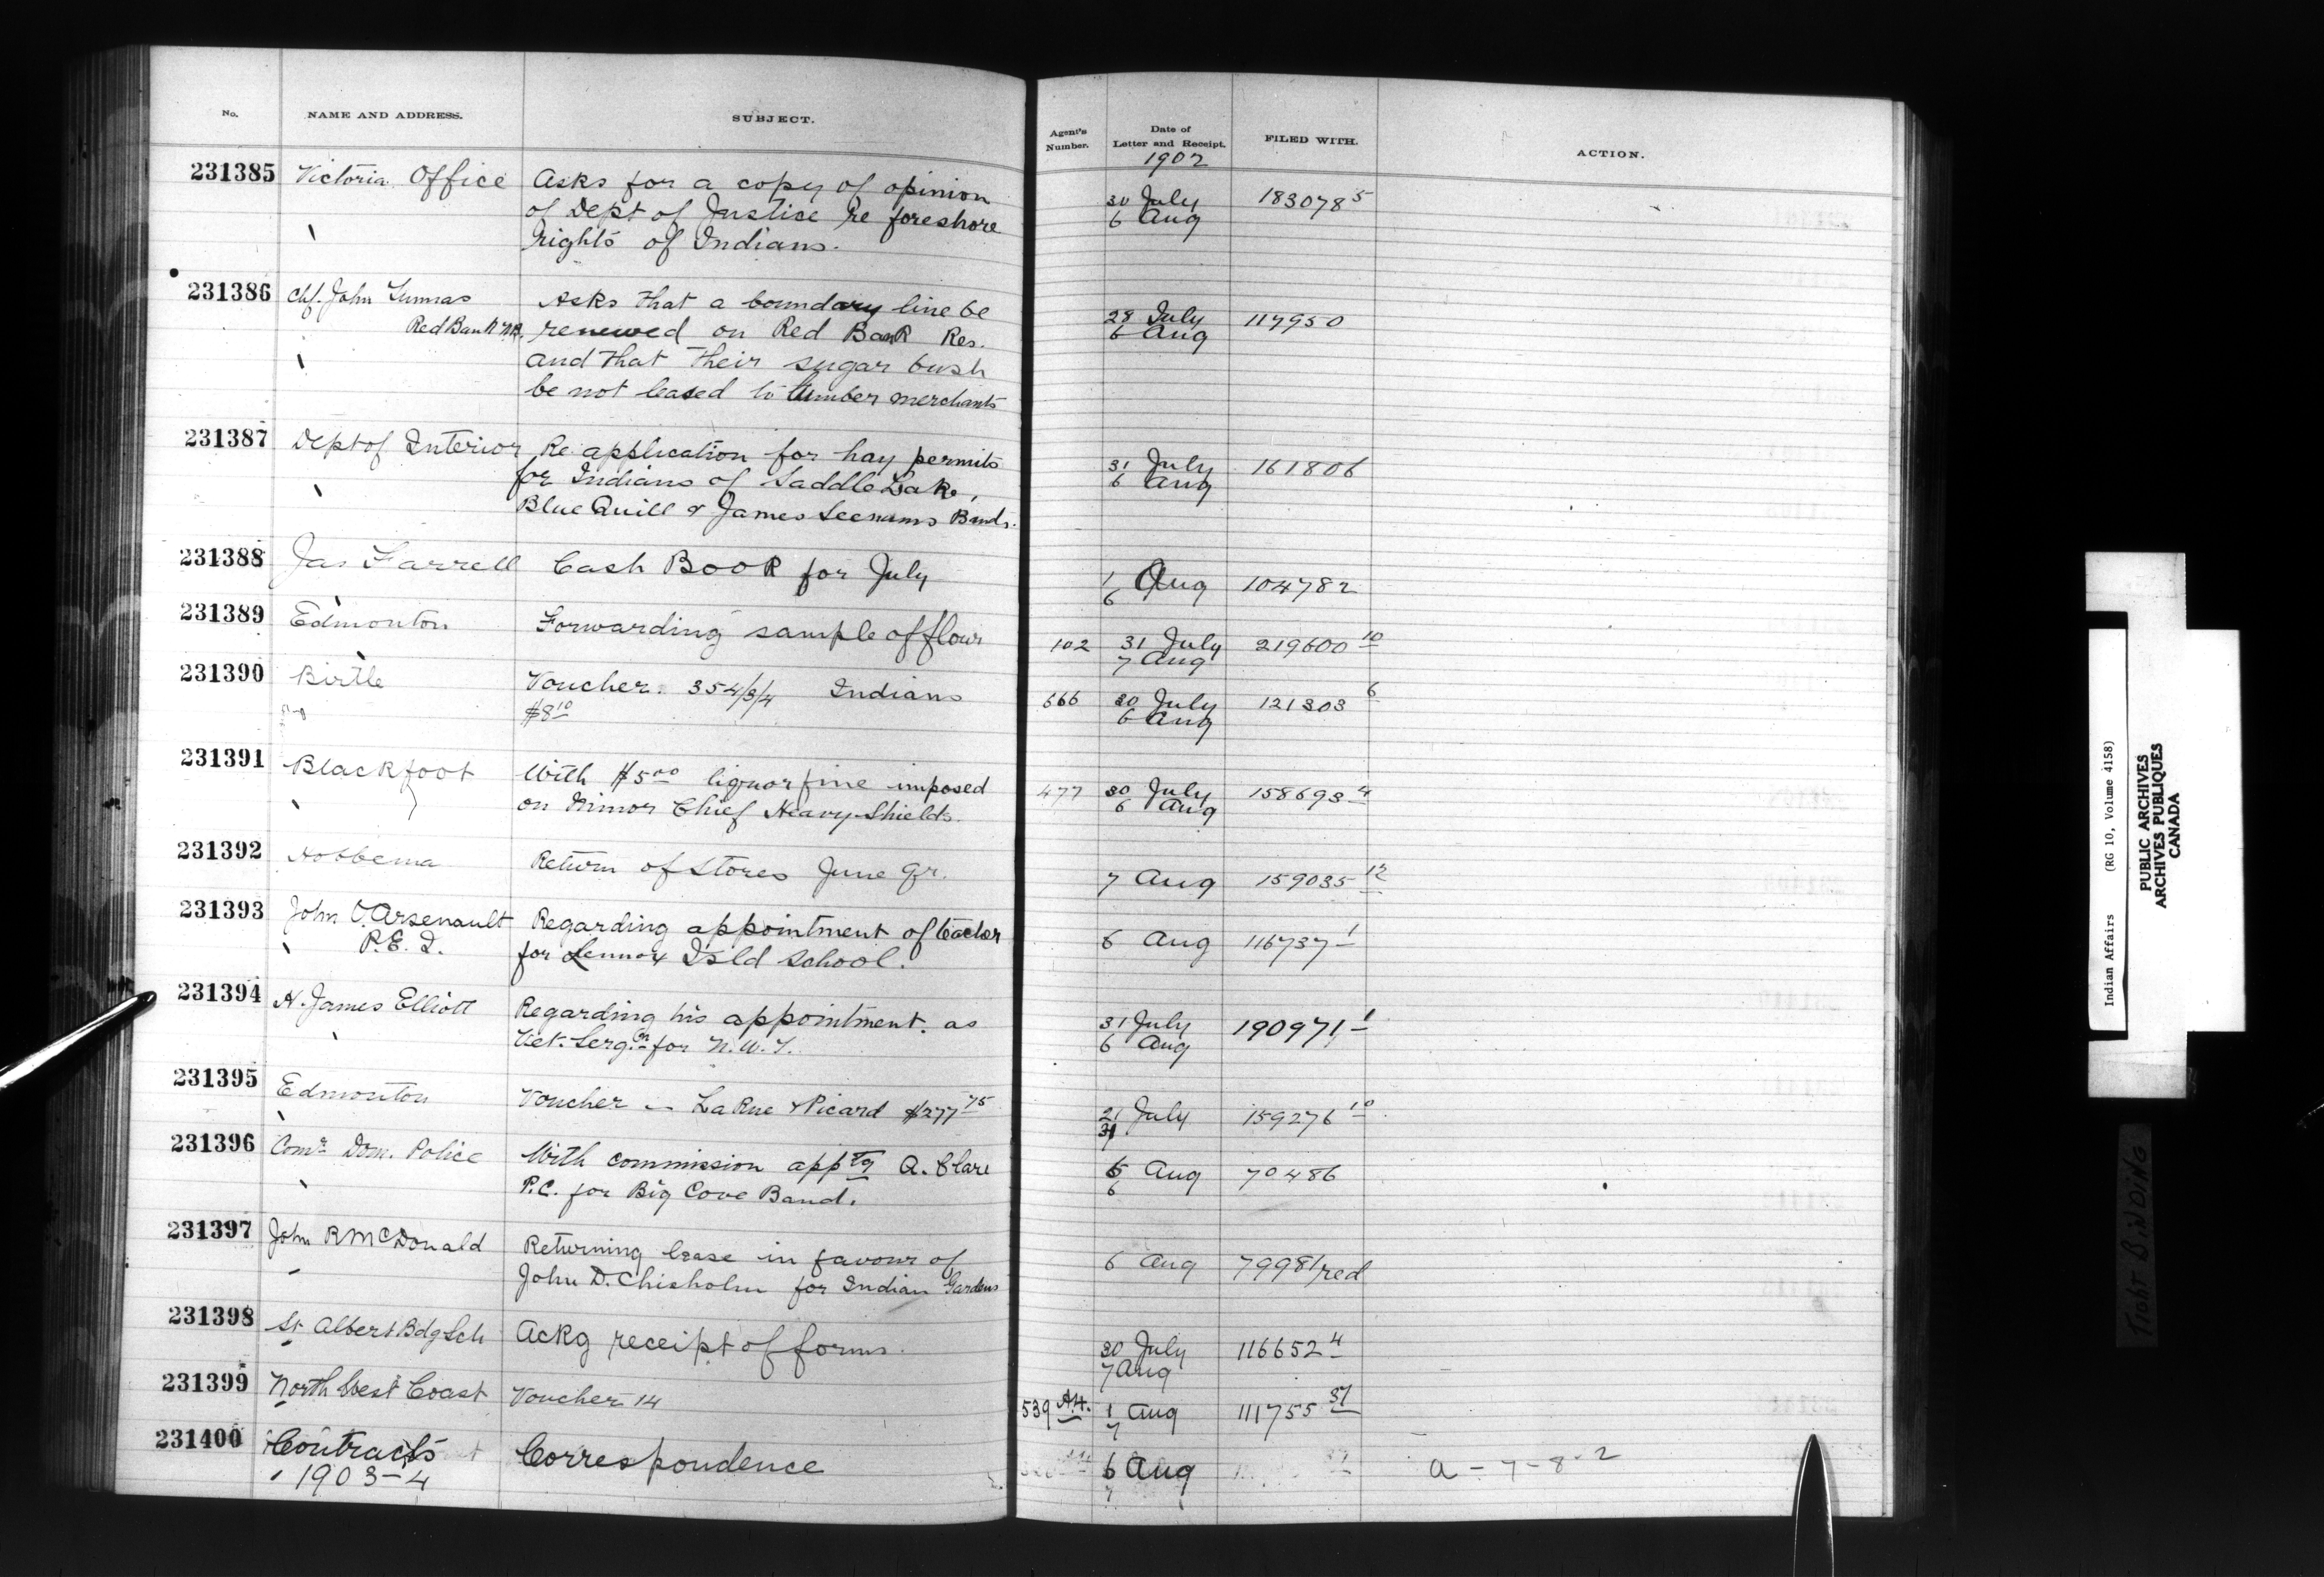 No. NAME AND ADDRESS. SUBJECT. Agent's Number. Date of Letter and Receipt. FILED WITH. ACTION.
1902
231385 Victoria Office Asks for a copy of opinion 30 July 183078 5
of Dept of Justice re foreshore 6 Aug
rights of Indians.
231386 Chf. John Asks that a boundary line be 28 July 117950
Red Bank N.B. renewed on Red Bank Res. 6 Aug
and that their sugar bush
be not leased to lumber merchants
231387 Dept of Interior Re application for hay permits 31 July 161806
for Indians of Saddle Lake, 6 Aug
Blue Quill & James Seenums Bands.
231388 Jas Farrell Cash Book for July 1 Aug 104782
6
231389 Edmonton Forwarding sample of flour 102 31 July 219600 10
7 Aug
231390 Birtle Voucher 354/3/4 Indians 666 30 July 121303 6
$8 10 6 Aug
231391 Blackfoot With $5 00 liquor fine imposed 477 30 July 158693 4
on Minor Chief Heavy Shields. 6 Aug
231392 Hobbema Return of Stores June qr. 7 Aug 159035 12
231393 John O. Arsenault Regarding appointment of teacher 6 Aug 116737 1
P.E.I. for Lennox Isld School.
231394 H. James Elliott Regarding his appointment. as 31 July 190971 1
Vet. Serg.n for N.W.T. 6 Aug
231395 Edmonton Voucher - LaRue & Picard $277 75 21 July 159276 10
31
231396 Comr Dom. Police With commission apptg A. Clare 5 Aug 70486
P.C. for Big Cove Band. 6
231397 John R McDonald Returning lease in favour of 6 Aug 79981/red
John D. Chisholm for Indian Gardens
231398 St Albert Bdg Sch Ackg receipt of forms. 30 July 116652 4
7 Aug
231399 North West Coast Voucher 14 539 A.4. 1 Aug 111755 37
7
231400 Contracts Correspondence 6 Aug a-7-8-2
1903-4 7
Indian Affairs (RG 10, Volume 4158)
PUBLIC ARCHIVES
ARCHIVES PUBLIQUES
CANADA
TIGHT BINDING